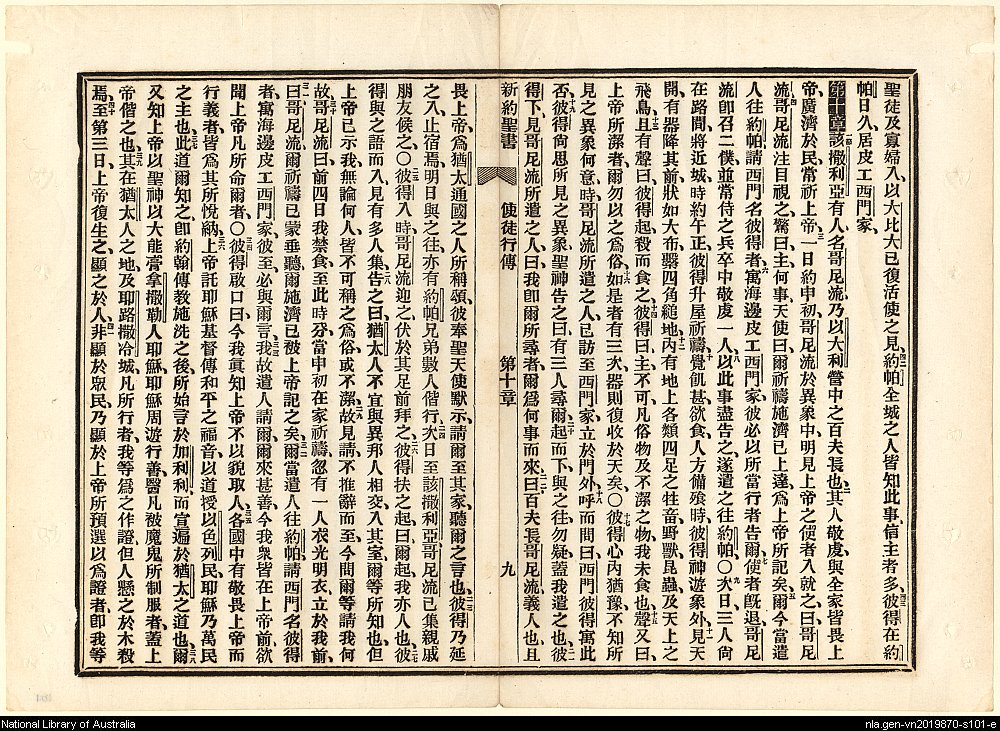 聖徒及寡婦入以大比大已復活使之見約帕全城之人皆知此事信主者多彼得在約
帕日久居皮工西門家
第十章該撒利亞有人名哥尼流乃以大利營中之百夫長也其人敬虔與全家皆畏上
帝廣濟於民常祈上帝一日約申初哥尼流於異象中明見上帝之使者入就之曰哥尼
流哥尼流注目視之驚曰主何事天使曰爾祈禱施濟已上達為上帝所記矣爾今當遣
人往約帕請西門名彼得者寓海邊皮工西門家彼必以所當行者告爾使者旣退哥尼
流卽召二僕並常侍之兵卒中敬虔一人以此事盡告之遂遣之往約帕○次日三人尙
在路間將近城時約午正彼得升屋祈禱覺飢甚欲食人方備飱時彼得神遊象外見天
開有器降其前狀如大布四角縋地內有地上各類四足之牲野獸昆蟲及天上之
飛鳥且有聲曰彼得起殺而食之彼得曰主不可凡俗物及不潔之物我未食也聲又曰
上帝所潔者爾勿以之為俗如是者有三次器則復收於天矣○彼得心內猶豫不知所
見之異象何意時哥尼流所遣之人已訪至西門家立於門外呼而問曰西門彼得寓此
否彼得尙思所見之異象聖神告之曰有三人尋爾起而下與之往勿疑蓋我遣之也彼
得下見哥尼流所遣之人曰我卽爾所尋者爾為何事而來曰百夫長哥尼流義人也且
新約聖書 使徒行傳 第十章 九
畏上帝為猶太通國之人所稱頌彼奉聖天使默示請爾至其家聽爾之言也彼得乃延
之入止宿焉明日與之往亦有約帕兄弟數人偕行次日至該撒利亞哥尼流已集親戚
朋友候之○彼得入時哥尼流迎之伏於其足前拜之彼得扶之起曰爾起我亦人也彼
得與之語而入見有多人集告之曰猶太人不宜與異邦人相交入其室爾等所知也但
上帝已示我無論何人皆不可稱之為俗或不潔故見請不推辭而至今問爾等請我何
故哥尼流曰前四日我禁食至此時分當申初在家祈禱忽有一人衣光明衣立於我前
曰哥尼流爾祈禱已蒙垂聽爾施濟已被上帝記之矣爾當遣人往約帕請西門名彼得
者寓海邊皮工西門家彼至必與爾言我故遣人請爾爾來甚善今我衆皆在上帝前欲
聞上帝凡所命爾者○彼得啟口曰今我眞知上帝不以貌取人各國中有敬畏上帝而
行義者皆為其所悅納上帝託耶穌基督傳和平之福音以道授以色列民耶穌乃萬民
之主也此道爾知之卽約翰傳教施洗之後所始言於加利利而宣遍於猶太之道也爾
又知上帝以聖神以大能膏拿撒勒人耶穌耶穌周遊行善醫凡被魔鬼所制服者蓋上
帝偕之也其在猶太人之地及耶路撒冷城凡所行者我等為之作證但人懸之於木殺
焉至第三日上帝復生之顯之於人非顯於衆民乃顯於上帝所預選以為證者卽我等
National Library of Australia
nla.gen-vn2019870-s101-e